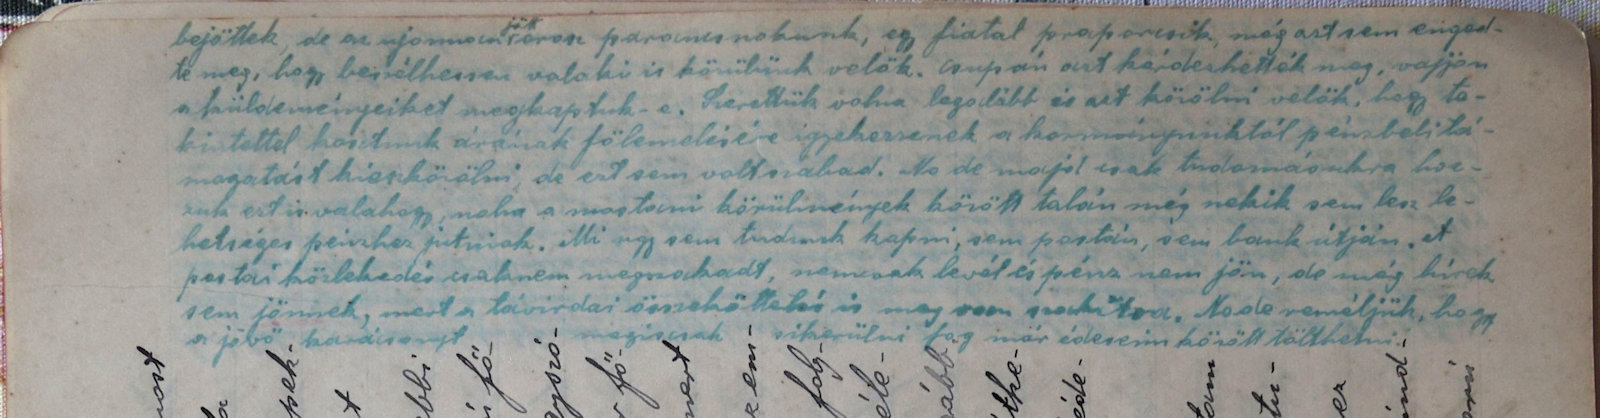 jött
bejöttek, de az ujonnan orosz parancsnokunk, egy fiatal praporcsik, még azt sem enged-
te meg, hogy beszélhessen valaki is közülünk velök. Csupán azt kérdezhették meg, vajjon
a küldeményeiket megkaptuk-e. Szerettük volna legalább is azt közölni velök, hogy te-
kintettel kosztunk árának fölemelésére igyekezzenek a kormányunktól pénzbeli tá-
mogatást kieszközölni de ezt sem volt szabad. No de majd csak tudomásukra hoz-
zuk ezt is valahogy, noha a mostani körülmények között talán még nekik sem lesz le-
hetséges pénzhez jutniok. Mi ugy sem tudunk kapni, sem postán, sem bank útján. A
postai közlekedés csaknem megszakadt, nemcsak levél és pénz nem jön, de még hírek
sem jönnek, mert a távirdai összeköttetés is meg van szakitva. No de reméljük, hogy
a jövő karácsonyt megiscsak sikerülni fog már édeseim között tölthetni!
most
pek-
t
bbi
fö-
gyszó-
fö-
mert
zem-
foly-
éle-
vább
éthe-
ede-
tam
tu-
ez
ind-